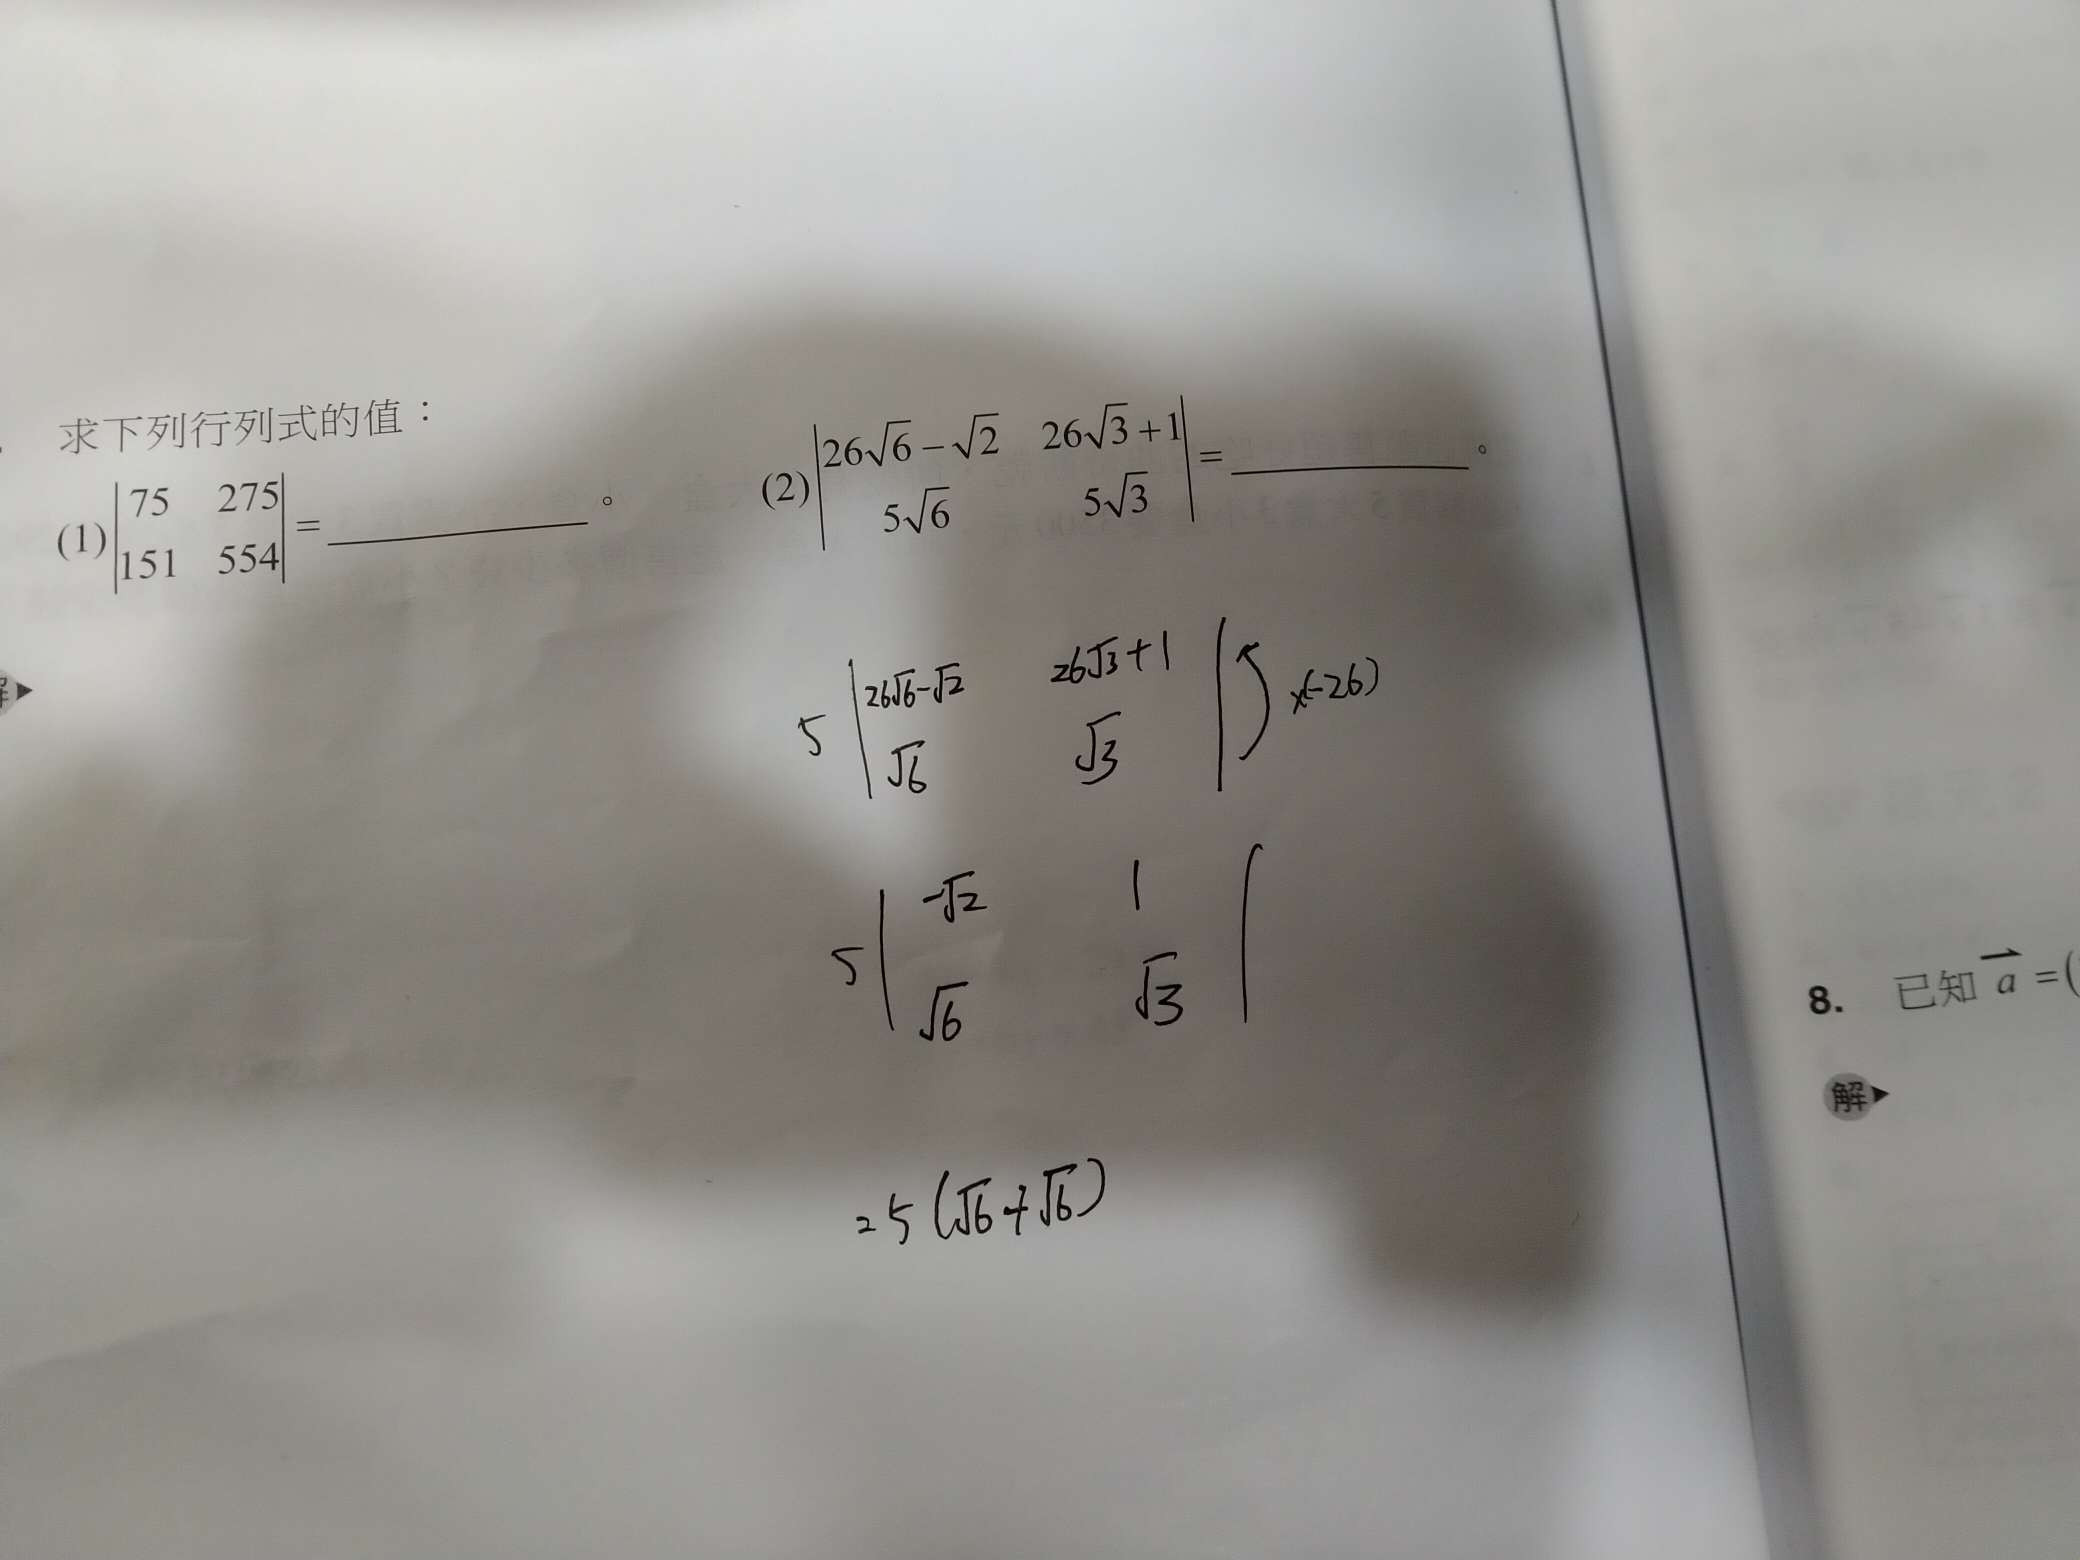 求下列行列式的值：
(1) |75 275| = ________ 。
|151 554|
(2) |26√6−√2 26√3+1| = ________ 。
|5√6 5√3|
5 |26√6-√2 26√3+1| ×(-26)
|√6 √3|
5 |-√2 1|
|√6 √3|
=5(√6+√6)
8. 已知 a⃗ =(
解▶